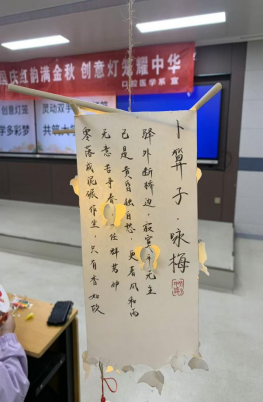 国庆红韵满金秋 创意灯笼耀中华
口腔医学系 宣
创意灯笼
灵动双手
学多彩梦
共筑
卜算子·咏梅
驿外断桥边，寂寞开无主
已是黄昏独自愁，更着风和雨
无意苦争春，一任群芳妒
零落成泥碾作尘，只有香如故